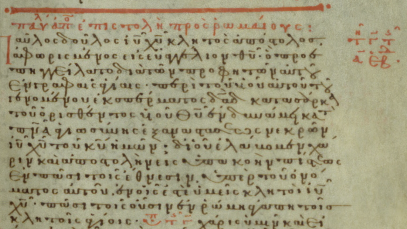 παύλου ἐπιστολὴ πρὸς ῥωμαίους:
Παῦλος δοῦλος ἰῦ χῦ κλητὸς ἀπόστολος
ἀφωρισμένος εἰς εὐαγγέλιον θῦ· ὃ προε
πηγγείλατο διὰ τῶν προφητῶν αὐτοῦ
ἐν γραφαῖς ἁγίαις· περὶ τοῦ υἱοῦ αὐτοῦ τοῦ
γενομένου ἐκ σπέρματος δᾱδ κατὰ σάρκα
τοῦ ὁρισθέντος υἱοῦ θῦ ἐν δυνάμει κατὰ
πνᾱ ἁγιωσύνης ἐξ ἀναστάσεως νεκρῶν
ἰῦ χῦ τοῦ κῦ ἡμῶν· δι' οὗ ἐλάβομεν χά
ριν καὶ ἀποστολὴν εἰς ὑπακοὴν πίστεως
ἐν πᾶσι τοῖς ἔθνεσιν ὑπὲρ τοῦ ὀνό
ματος αὐτοῦ, ἐν οἷς ἐστὲ καὶ ὑμεῖς κλητοὶ ἰῦ
χῦ· πᾶσι τοῖς οὖσιν ἐν ῥώμῃ ἀγαπητοῖς
κλητοῖς ἁγίοις· χάρις ὑμῖν καὶ εἰ